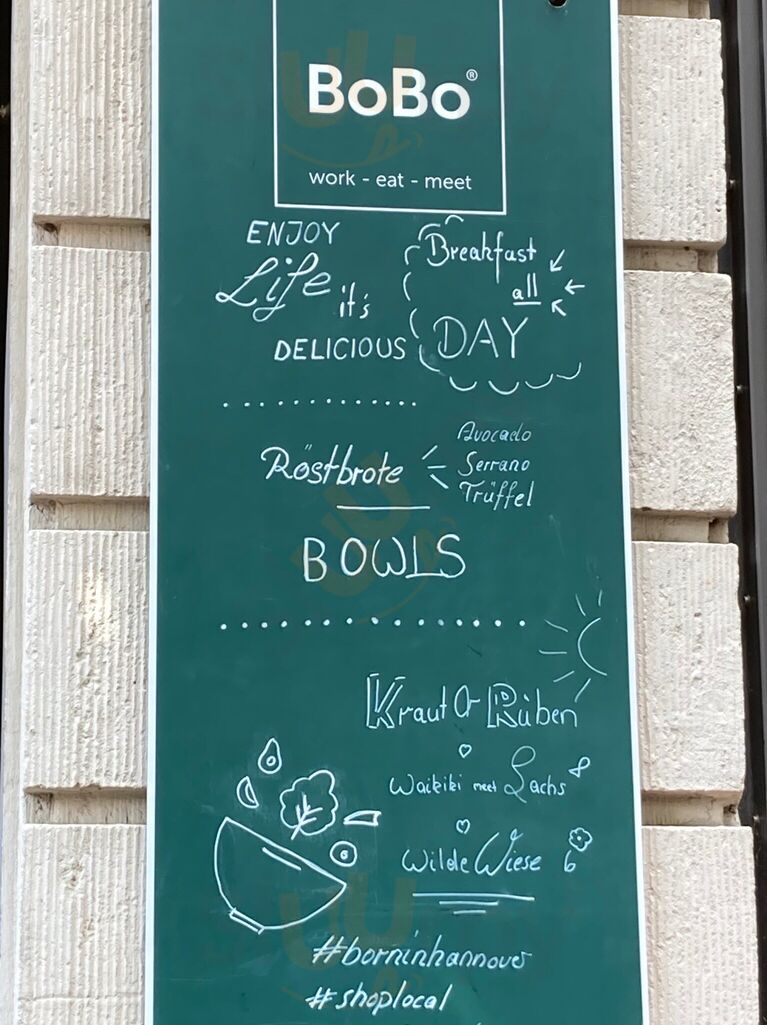 BoBo®
work - eat - meet
ENJOY
Life it's
DELICIOUS
Breakfast
all
DAY
Röstbrote
Avocado
Serrano
Trüffel
BOWLS
Kraut & Rüben
Waikiki meet Lachs
Wilde Wiese
#borninhannover
#shoplocal